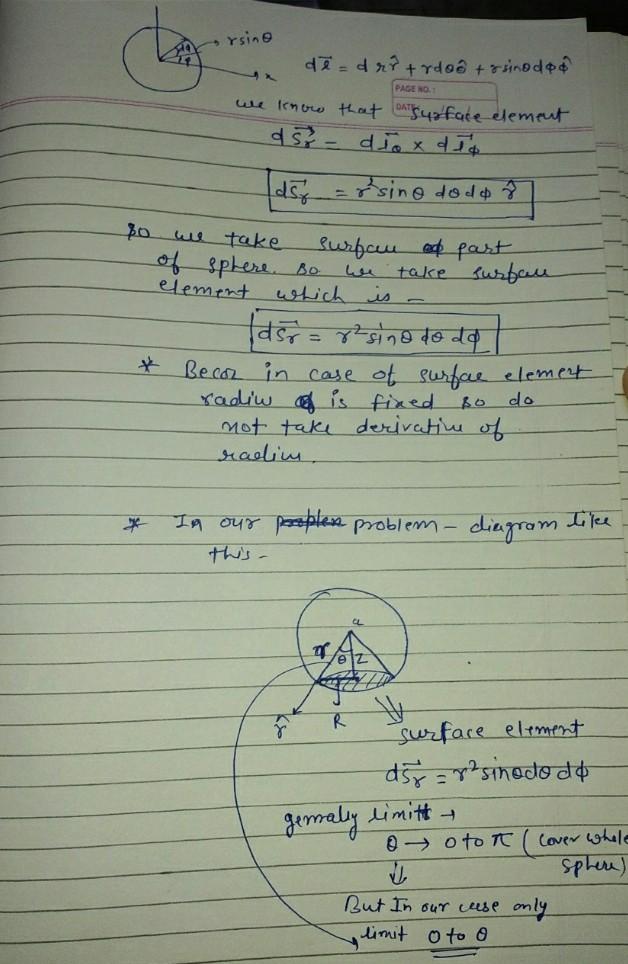 r sinθ
x
dl⃗ = dr r̂ + rdθ θ̂ + r sinθ dφ φ̂
PAGE NO.:
DATE
we know that surface element
dS⃗r = dl⃗θ × dl⃗φ
dS⃗r = r² sinθ dθ dφ r̂
so we take surfau part
of sphere. so we take surfau
element which is –
dS⃗r = r² sinθ dθ dφ
* Becoz in case of surfae element
radiu is fixed so do
not take derivative of
radius.
* In our problem – diagram like
this –
a
r θ z
r̂ R
surface element
dS⃗r = r² sinθ dθ dφ
genrally limit →
θ → 0 to π (cover whole
sphere)
⇓
But In our case only
limit 0 to θ